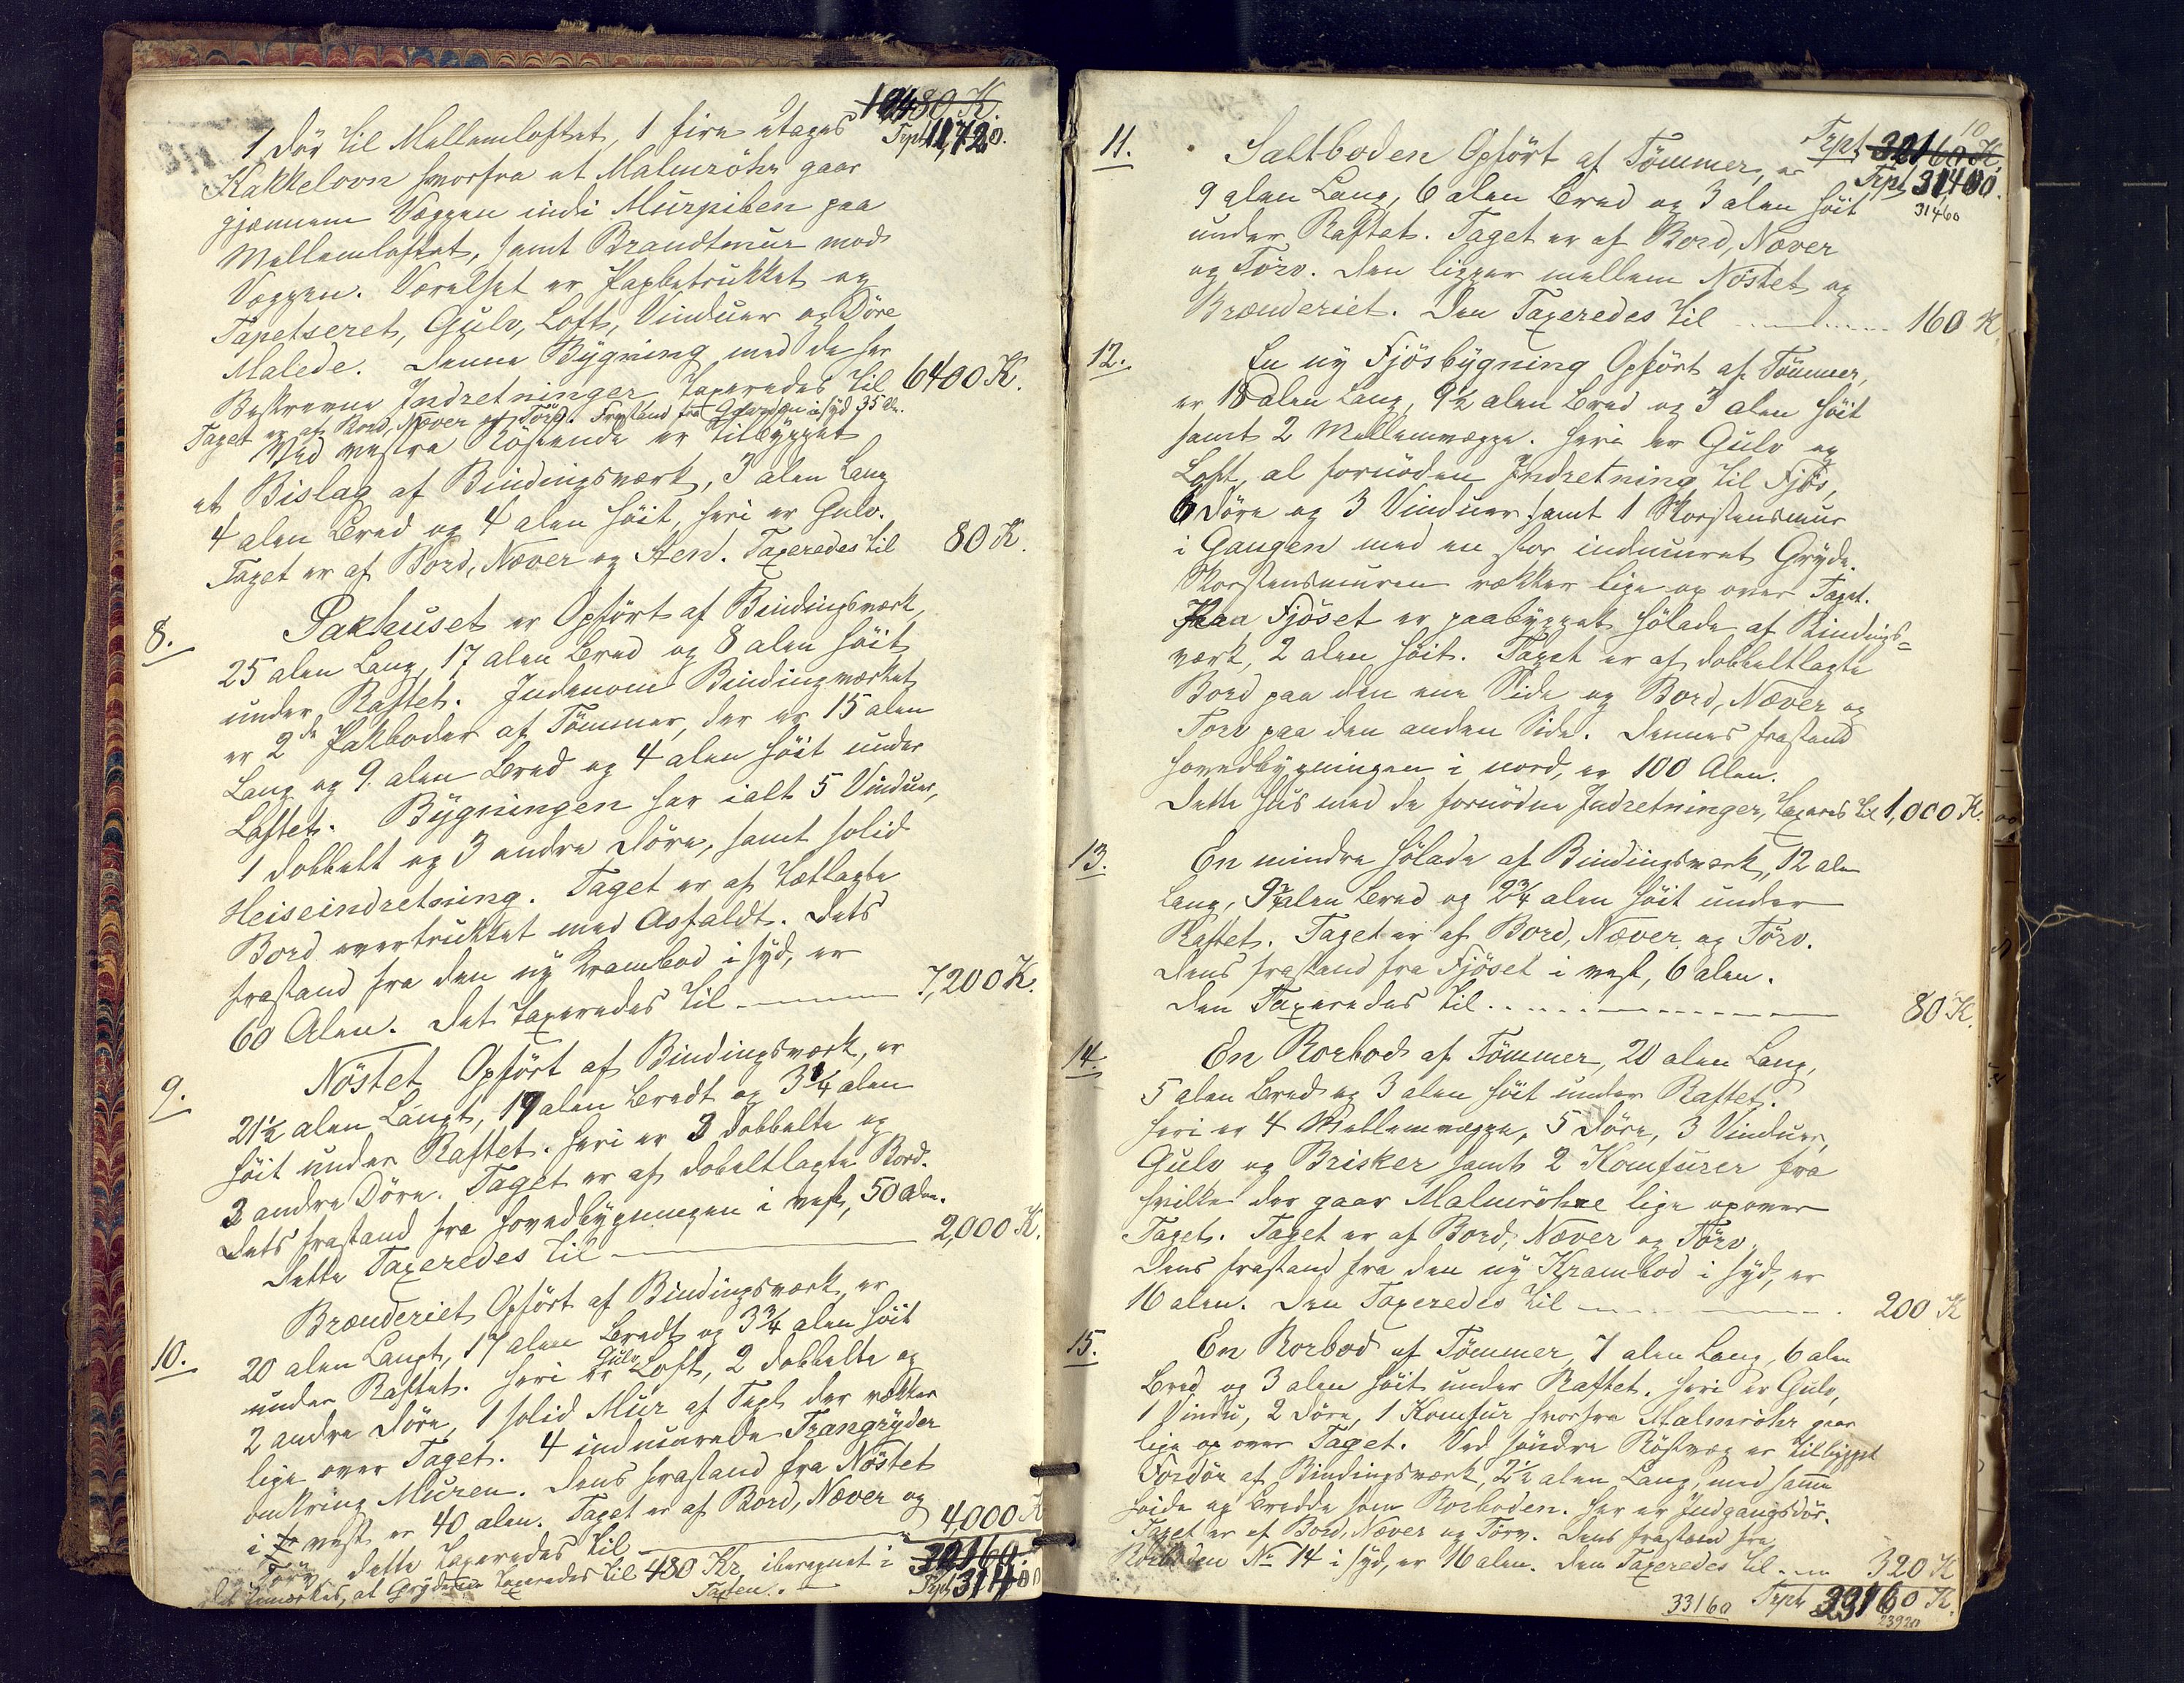 10480 K.
Trpt 11,720.
1 Dör til Mellemloftet, 1 fire etages
Kakkelovn hvorfra et Malmröhr gaar
gjennem Væggen indi Murpiben paa
Mellemloftet, samt Brandtmur mod
Væggen. Værelset er Papbetrukket og
Tapetseret, Gulv, Loft, Vinduer og Döre
Malede. Denne Bÿgning med de her
Beskrevne Indretninger taxeredes til 6400 K.
Taget er af Bord, Næver og Törv. Frastand fra i syd 35 Al.
Ved vestre Röstende er tilbÿgget
et Bislag af Bindingsværk, 3 alen Lang
4 alen Bred og 4 alen höit, heri er Gulv.
Taget er af Bord, Næver og Sten. Taxeredes til 80 K.
8. Pakhuset er Opfört af Bindingsværk,
25 alen Lang, 17 alen Bred og 8 alen höit
under Raftet. Indenom Bindingværket
er 2de Pakboder af Tömmer, der er 15 alen
Lang og 9 alen Bred og 4 alen höit under
Loftet. Bÿgningen har ialt 5 Vinduer,
1 dobbelt og 3 andre Döre, samt solid
Heiseindretning. Taget er af tætlagte
Bord overtrukket med Asfaldt. Dets
frastand fra den nÿ Krambod i sÿd, er
60 Alen. Det taxeredes til 7,200 K.
9. Nöstet Opfört af Bindingsværk, er
21½ alen Langt, 17 alen Bredt og 3¼ alen
höit under Raftet. Heri er 3 dobbelte og
3 andre Döre. Taget er af dobeltlagte Bord.
Dets frastand fra hovedbÿgningen i vest, 50 Alen.
Dette Taxeredes til 2,000 K.
10. Brænderiet Opfört af Bindingsværk, er
20 alen Langt, 17 alen Bredt og 3¾ alen höit
under Raftet. Heri er Gulv Loft, 2 dobbelte og
2 andre Döre, 1 solid Mur af Tegl der rækker
lige over Taget. 4 indmurede Trangrÿder
omkring Muren. Dens frastand fra Nöstet
i vest er 40 alen. Taget er af Bord, Næver og
Törv, dette taxeredes til 4,000 K
Det bemærkes, at Grÿderne taxeredes til 480 Kr, iberegnet i Taxten. 32160.
Trpt 31400
Trpt 32160 K.
Trpt 31400.
31460
10
11. Saltboden Opfört af Tömmer, er
9 alen Lang, 6 alen Bred og 3 alen höit
under Raftet. Taget er af Bord, Næver
og Törv. Den ligger mellem Nöstet og
Brænderiet. Den Taxeredes til 160 K
12. En nÿ Fjösbÿgning Opfört af Tömmer,
er 18 alen Lang, 9½ alen Bred og 3 alen höit
samt 2 Mellemvægge. Heri er Gulv og
Loft, al fornöden Indretning til Fjös,
6 Döre og 3 Vinduer samt 1 Skorstensmur
i Gangen med en stor indmuret Grÿde.
Skorstensmuren rækker lige op over Taget.
Paa Fjöset er paabÿgget Hölade af Bindings=
værk, 2 alen höit. Taget er af dobbeltlagte
Bord paa den ene Side og Bord, Næver og
Törv paa den anden Side. Dennes frastand
hovedbÿgningen i nord, er 100 Alen.
Dette Hus med de fornödne Indretninger, taxeres til 1,000 K.
13. En mindre Hölade af Bindingsværk, 12 alen
Lang, 9½ alen Bred og 2¾ alen höit under
Raftet. Taget er af Bord, Næver og Törv.
Dens frastand fra Fjöset i vest, 6 alen.
Den Taxeredes til 80 K.
14. En Rorbod af Tömmer, 20 alen Lang,
5 alen Bred og 3 alen höit under Raftet.
Heri er 4 Mellemvægge, 5 Döre, 3 Vinduer,
Gulv og Brisker samt 2 Komfurer fra
hvilke der gaar Malmröhre lige opover
Taget. Taget er af Bord, Næver og Törv.
Dens frastand fra den nÿ Krambod i sÿd, er
16 alen. Den Taxeredes til 200 K
15. En Rorbod af Tömmer, 7 alen Lang, 6 alen
Bred og 3 alen höit under Raftet. Heri er Gulv,
1 Vindu, 2 Döre, 1 Komfur hvorfra Malmröhr gaar
lige op over Taget. Ved söndre Röstvæg er tilbygget
Fordör af Bindingsværk, 2½ alen Lang, med samme
höide og Bredde som Rorboden. Her er Indgangsdör.
Taget er af Bord, Næver og Törv. Dens frastand fra
Rorboden No 14 i sÿd, er 16 alen. Den Taxeredes til 320 K
33160 Trpt 33160 K.
23920